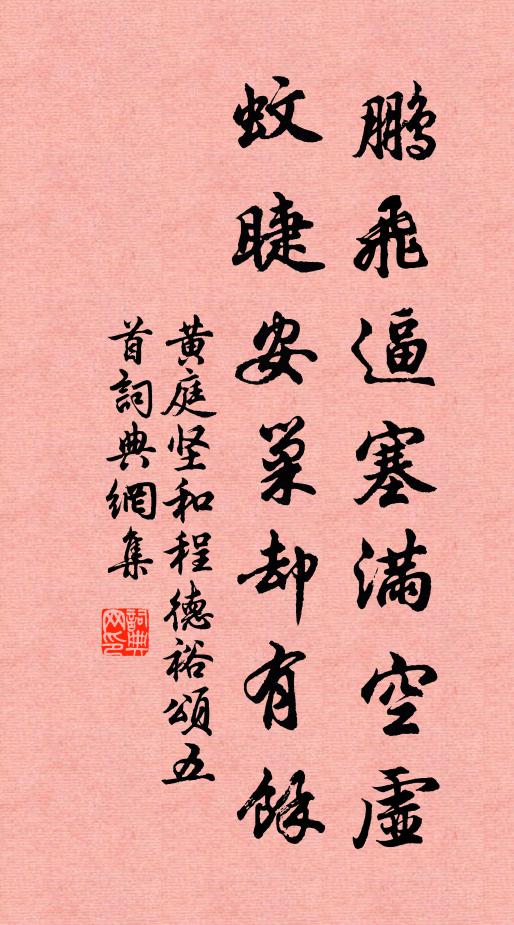 鵬飛逼塞滿空虛
蚊睫安巢却有餘
黄庭坚和程德裕頌五
首詞典網集
詞典
网印